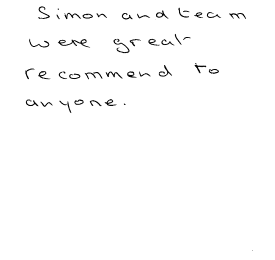 Simon and team
were great
recommend to
anyone.